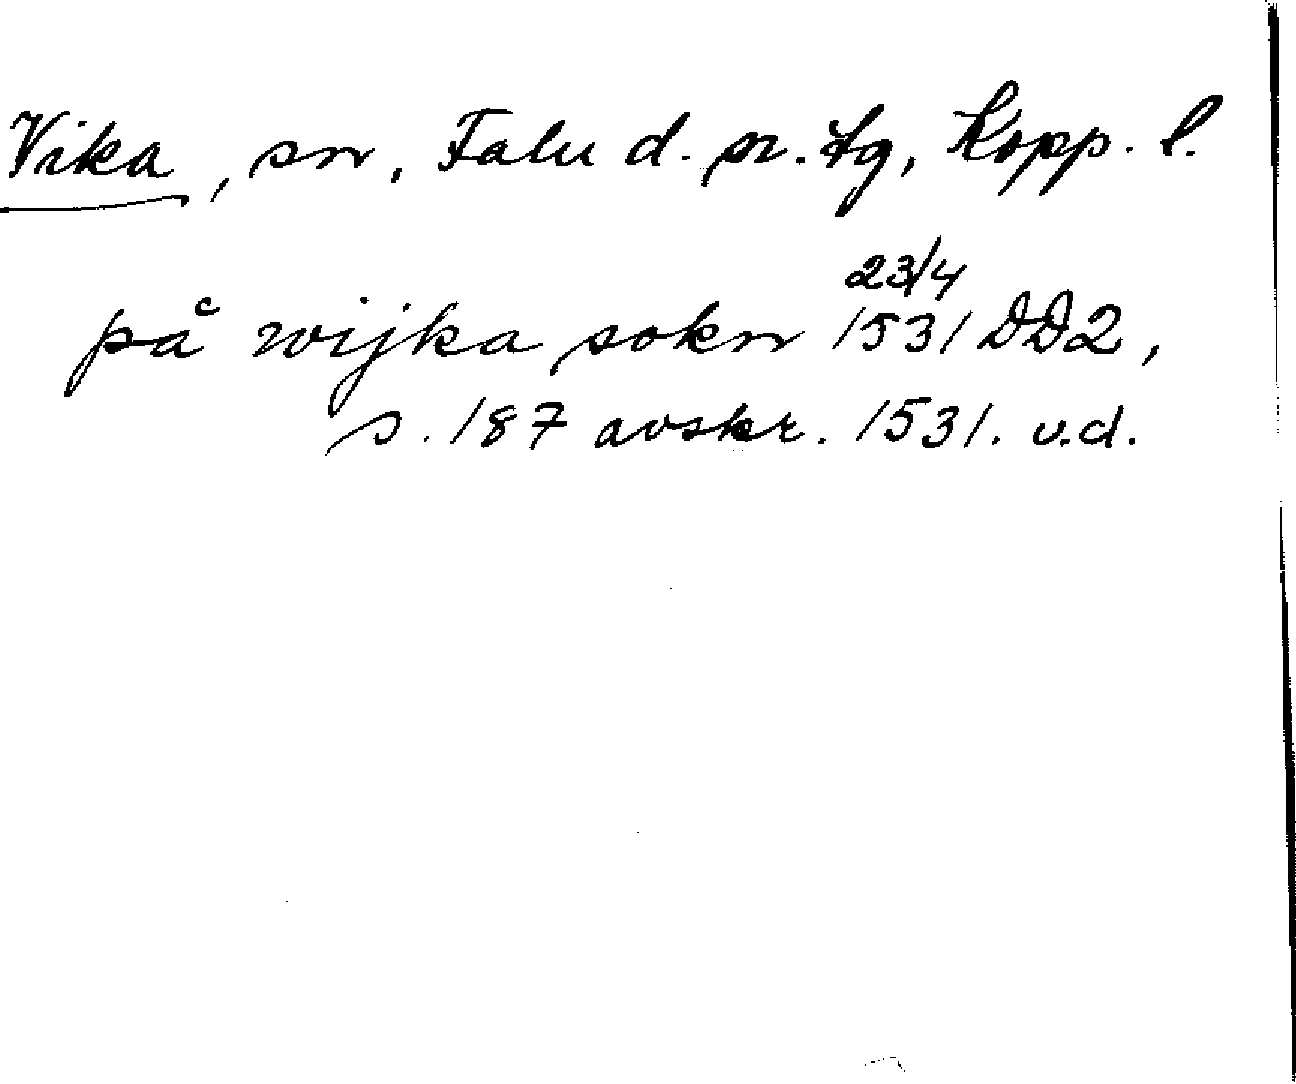 Vika, sn, Falu d. sr. tg, Kopp. l.
på wijka sokn 23/4 1531 DD2,
s. 187 avskr. 1531. v.d.